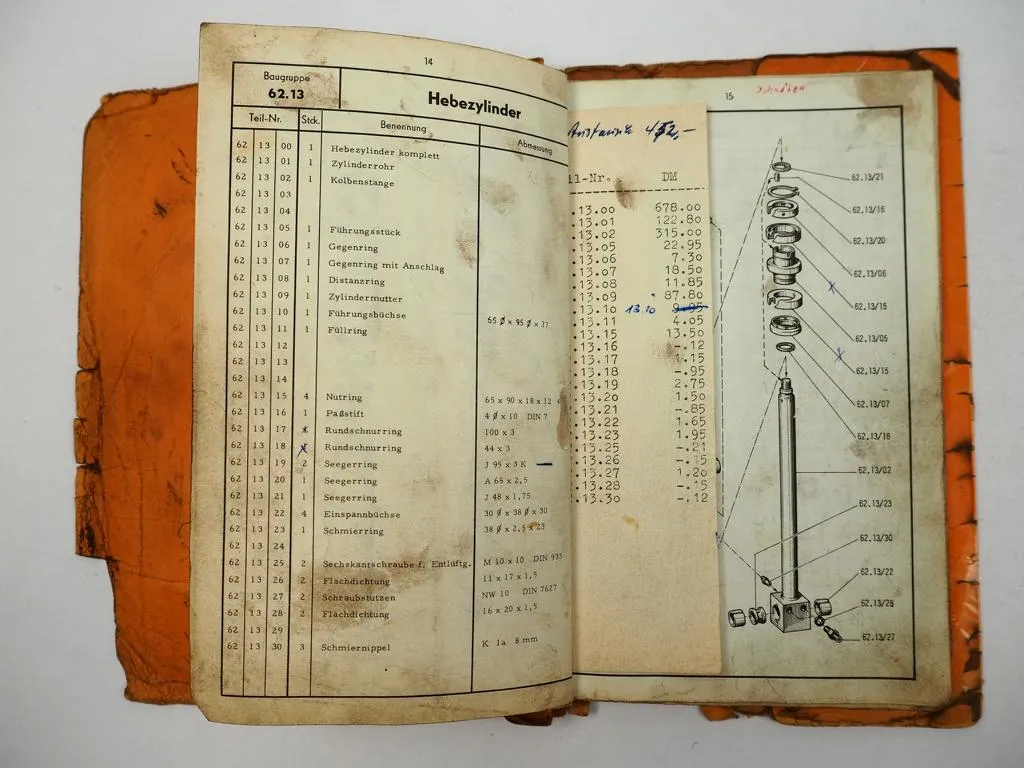 14
Baugruppe
62.13
Hebezylinder
Teil-Nr. Stck. Benennung Abmessung
62 13 00 1 Hebezylinder komplett
62 13 01 1 Zylinderrohr
62 13 02 1 Kolbenstange
62 13 03
62 13 04
62 13 05 1 Führungsstück
62 13 06 1 Gegenring
62 13 07 1 Gegenring mit Anschlag
62 13 08 1 Distanzring
62 13 09 1 Zylindermutter
62 13 10 1 Führungsbüchse 65 ∅ x 95 ∅ x 37
62 13 11 1 Füllring
62 13 12
62 13 13
62 13 14
62 13 15 4 Nutring 65 x 90 x 18 x 12
62 13 16 1 Paßstift 4 ∅ x 10 DIN 7
62 13 17 Rundschnurring 100 x 3
62 13 18 Rundschnurring 44 x 3
62 13 19 2 Seegerring J 95 x 3 K
62 13 20 1 Seegerring A 65 x 2,5
62 13 21 1 Seegerring J 48 x 1,75
62 13 22 4 Einspannbüchse 30 ∅ x 38 ∅ x 30
62 13 23 1 Schmierring 38 ∅ x 2,5 x 23
62 13 24
62 13 25 2 Sechskantschraube f. Entlüftg. M 10 x 10 DIN 933
62 13 26 2 Flachdichtung 11 x 17 x 1,5
62 13 27 2 Schraubstutzen NW 10 DIN 7627
62 13 28 2 Flachdichtung 16 x 20 x 1,5
62 13 29
62 13 30 3 Schmiernippel K 1a 8 mm
il-Nr. DM
.13.00 678.00
.13.01 122.80
.13.02 315.00
.13.05 22.95
.13.06 7.30
.13.07 18.50
.13.08 11.85
.13.09 87.80
.13.10 13.10 9.95
.13.11 4.05
.13.15 13.50
.13.16 -.12
.13.17 1.15
.13.18 -.95
.13.19 2.75
.13.20 1.50
.13.21 -.85
.13.22 1.65
.13.23 1.95
.13.25 -.21
.13.26 -.15
.13.27 1.20
.13.28 -.15
.13.30 -.12
15
62.13/21
62.13/16
62.13/20
62.13/06
62.13/15
62.13/05
62.13/15
62.13/07
62.13/18
62.13/02
62.13/23
62.13/30
62.13/22
62.13/28
62.13/27